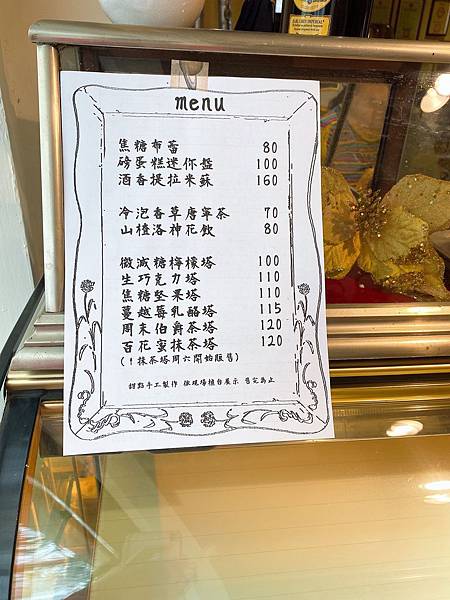 menu
焦糖布蕾 80
磅蛋糕迷你盤 100
酒香提拉米蘇 160
冷泡香草唐寧茶 70
山楂洛神花飲 80
微減糖檸檬塔 100
生巧克力塔 110
焦糖堅果塔 110
蔓越莓乳酪塔 115
周末伯爵茶塔 120
百花蜜抹茶塔 120
(!抹茶塔周六開始販售)
甜點手工製作 依現場櫃台展示 售完為止